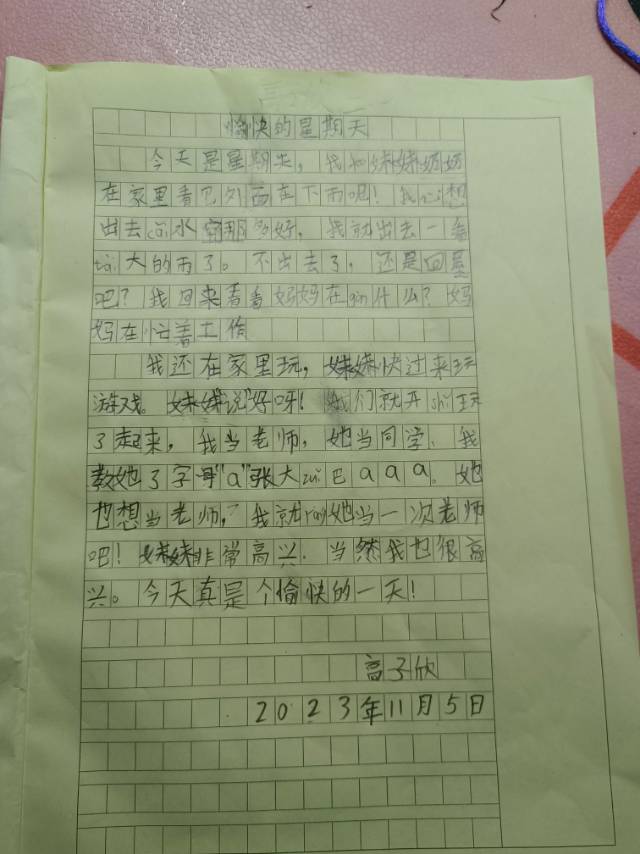 愉快的星期天
今天是星期天，我和妹妹奶奶
在家里看见外面在下雨呢！我心想
出去cǎi水窝那多好，我就出去一看
tài大的雨了。不出去了，还是回屋
吧？我回来看看妈妈在gàn什么？妈
妈在忙着工作
我还在家里玩，妹妹快过来玩
游戏。妹妹"说"好呀！我们就开shǐ玩
了起来，我当老师，她当同学，我
教她了字母"a"张大zuǐ巴aaa。她
也想当老师，我就ràng她当一次老师
吧！妹妹非常高兴.当然我也很高
兴。今天真是个愉快的一天！
高子欣
2023年11月5日